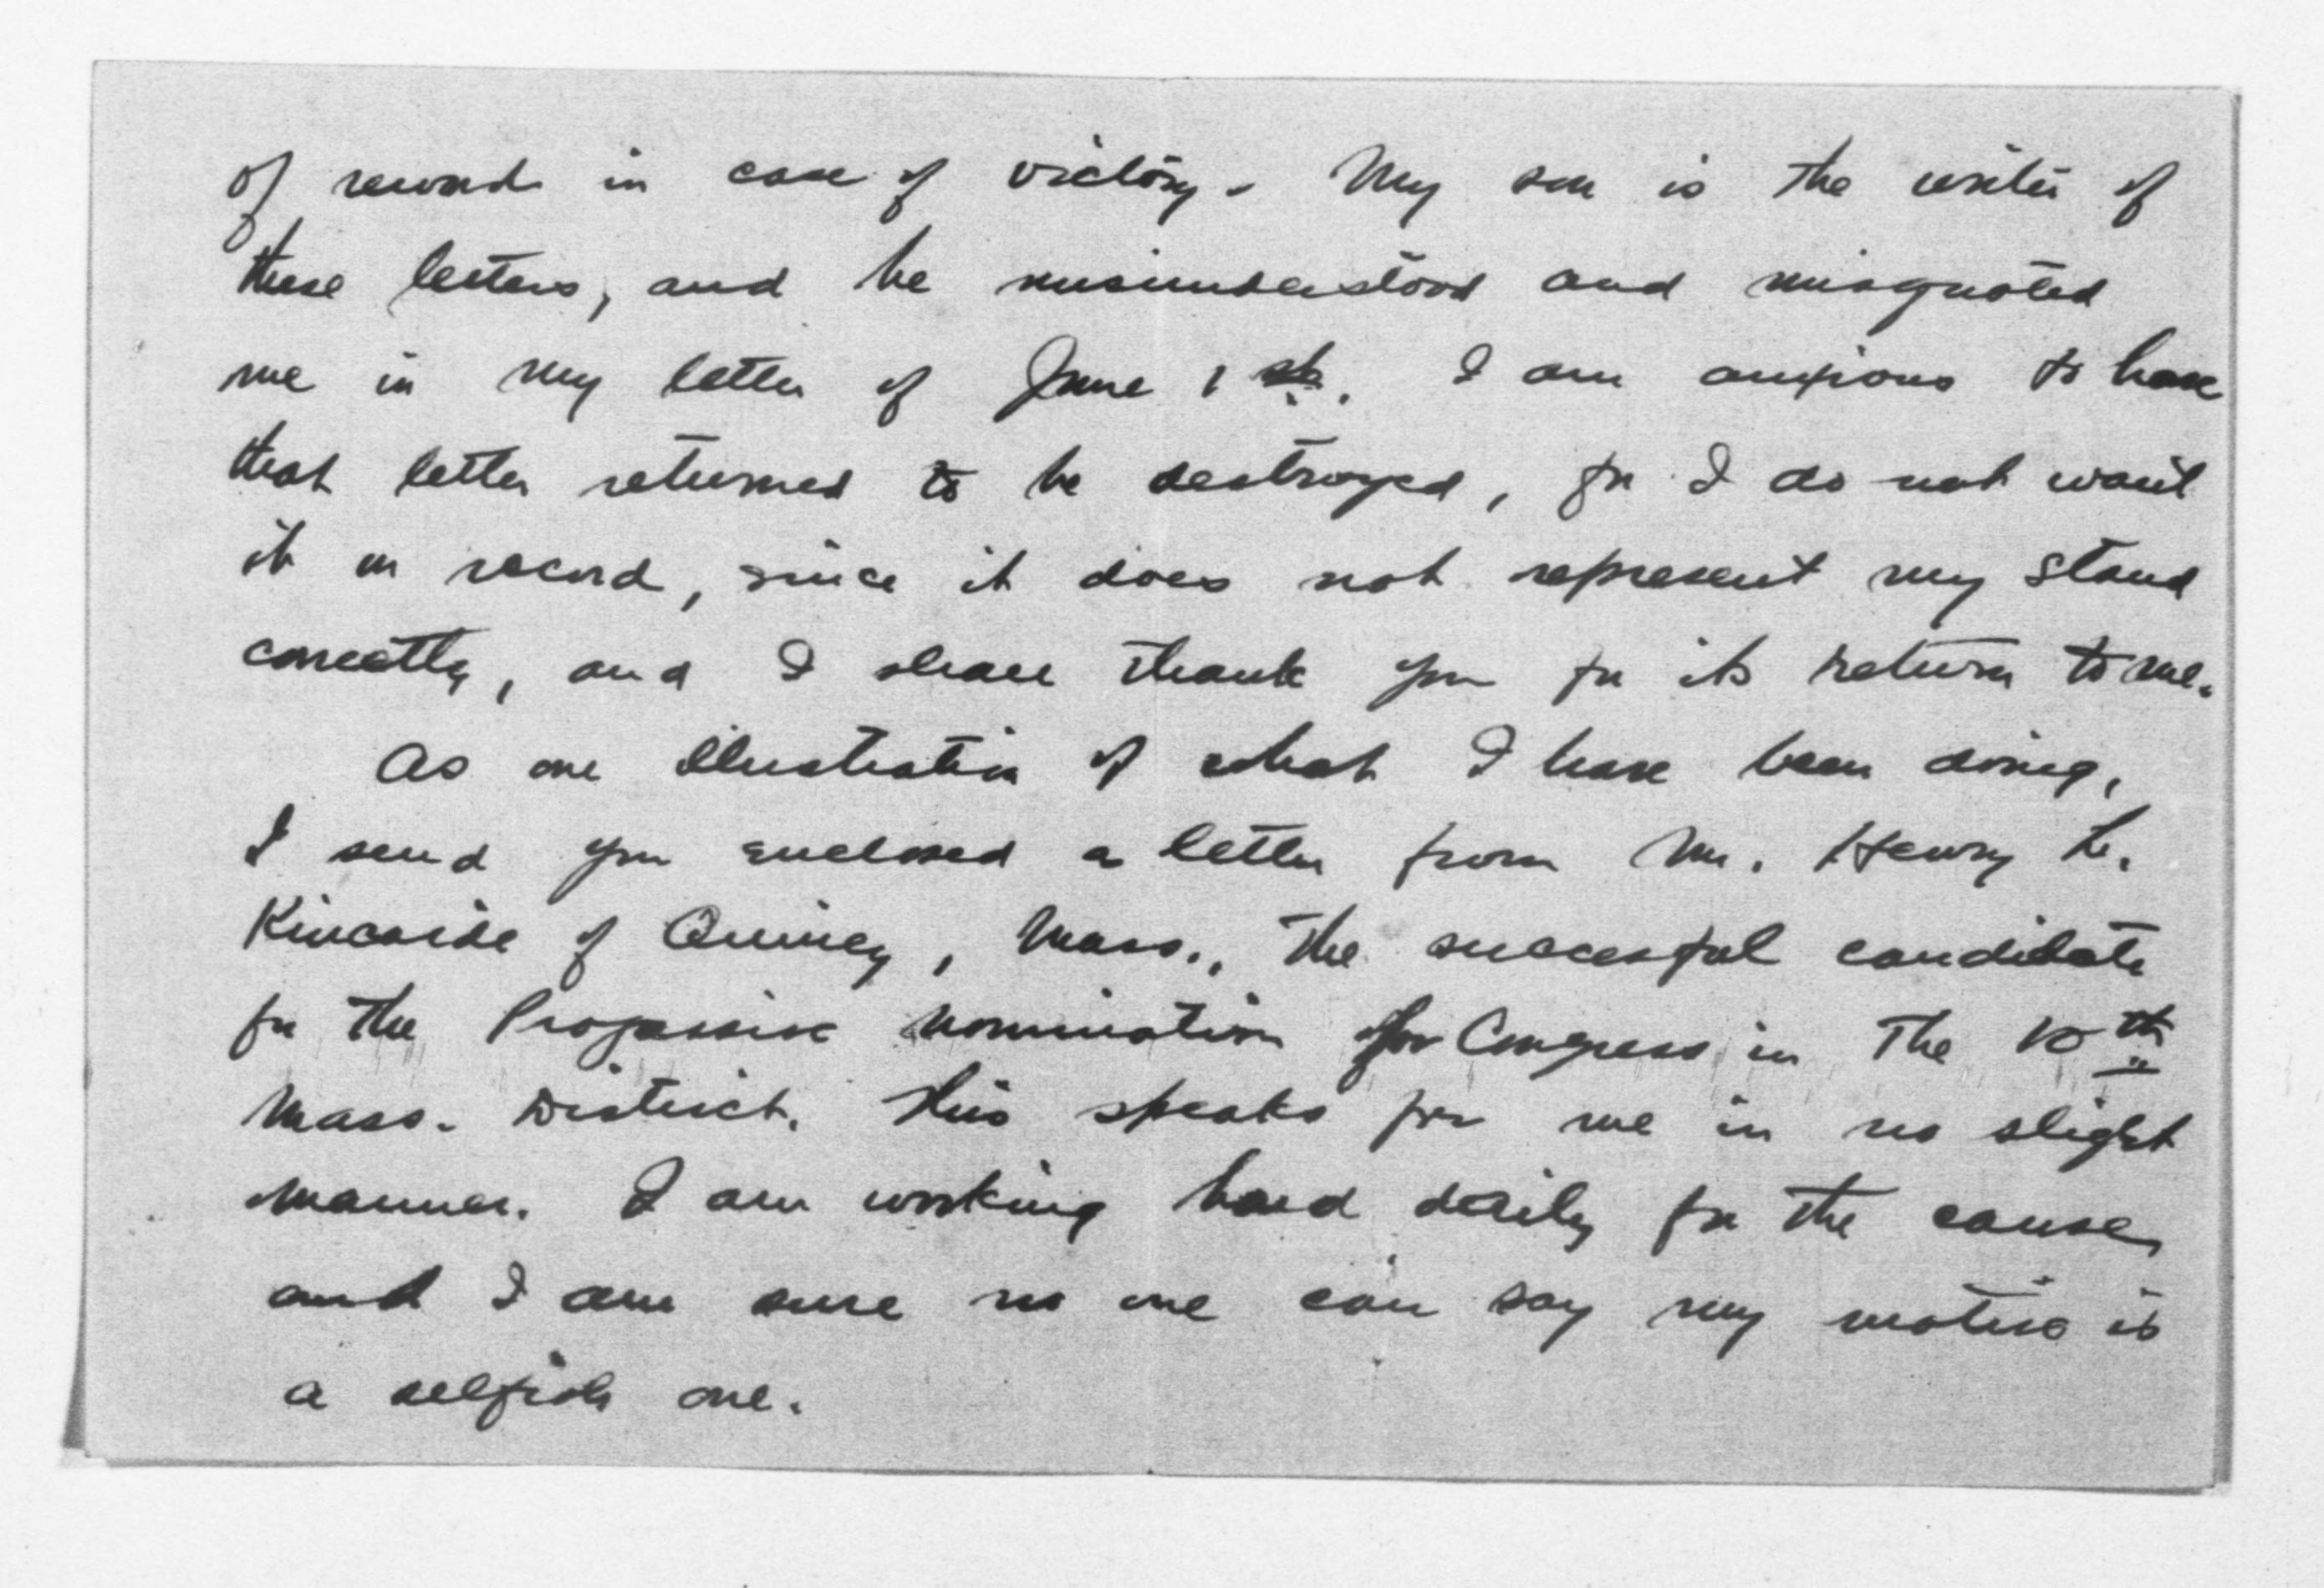 of reward in case of victory. My son is the writer of
these letters, and he misunderstood and misquoted
me in my letter of June 1st. I am anxious to have
that letter returned to be destroyed, for I do not want
it on record, since it does not represent my stand
correctly, and I shall thank you for its return to me.
As one illustration of what I have been doing,
I send you enclosed a letter from Mr. Henry L.
Kincaide of Quincy, Mass., the successful candidate
for the Progressive nomination for Congress in the 10th
Mass. District. This speaks for me in no slight
manner. I am working hard daily for the cause,
and I am sure no one can say my motive is
a selfish one.